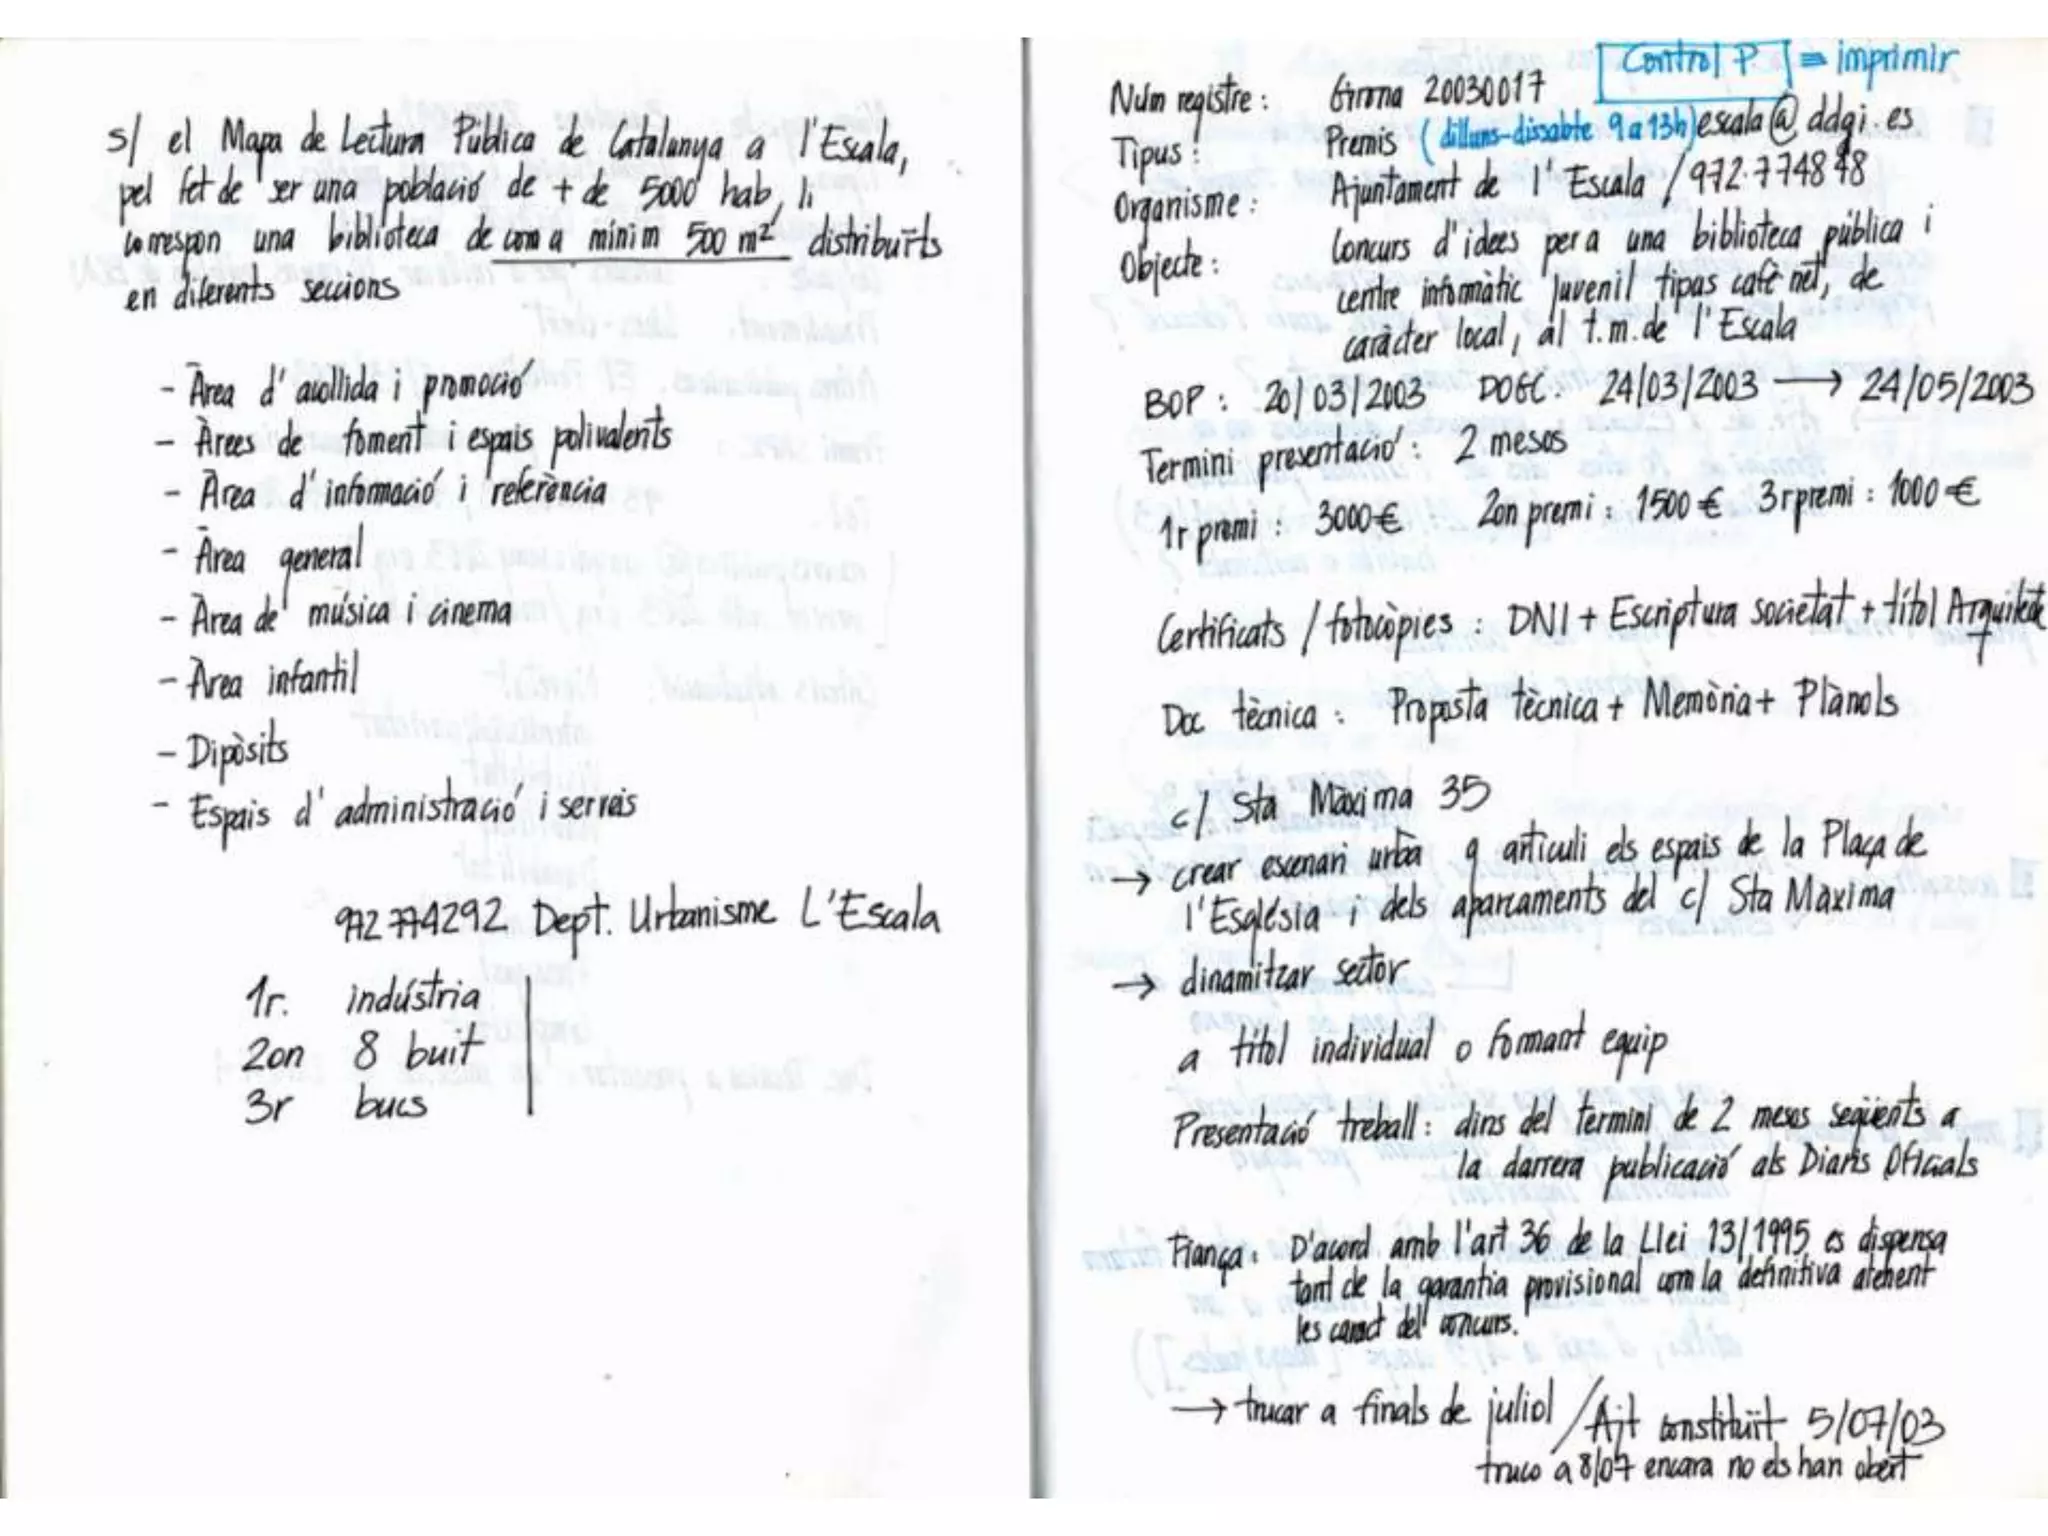 s/ el Mapa de Lectura Pública de Catalunya a l'Escala,
pel fet de ser una població de + de 5000 hab, li
correspon una biblioteca de com a mínim 500 m² distribuïts
en diferents seccions
- Àrea d'acollida i promoció
- Àrees de foment i espais polivalents
- Àrea d'informació i referència
- Àrea general
- Àrea de música i cinema
- Àrea infantil
- Dipòsits
- Espais d'administració i serveis
972 774292 Dept. Urbanisme L'Escala
1r. indústria
2on 8 buit
3r bucs
Control P = imprimir
Núm registre: Girona 20030017
Tipus: Premis (dilluns-dissabte 9 a 13h) escala@ddgi.es
Organisme: Ajuntament de l'Escala / 972.774848
Objecte: Concurs d'idees per a una biblioteca pública i
centre informàtic juvenil tipus cafè net, de
caràcter local, al t.m. de l'Escala
BOP: 20/03/2003 DOGC: 24/03/2003 → 24/05/2003
Termini presentació: 2 mesos
1r premi: 3000€ 2on premi: 1500€ 3r premi: 1000€
Certificats / fotocòpies: DNI + Escriptura societat + títol Arquitecte
Doc tècnica: Proposta tècnica + Memòria + Plànols
c/ Sta Màxima 35
→ crear escenari urbà q articuli els espais de la Plaça de
l'Església i dels aparcaments del c/ Sta Màxima
→ dinamitzar sector
a títol individual o formant equip
Presentació treball: dins del termini de 2 mesos següents a
la darrera publicació als Diaris Oficials
Fiança: D'acord amb l'art 36 de la Llei 13/1995 es dispensa
tant de la garantia provisional com la definitiva atenent
les caract del concurs.
→ trucar a finals de juliol / Ajt constituït 5/07/03
truco a 8/07 encara no els han obert